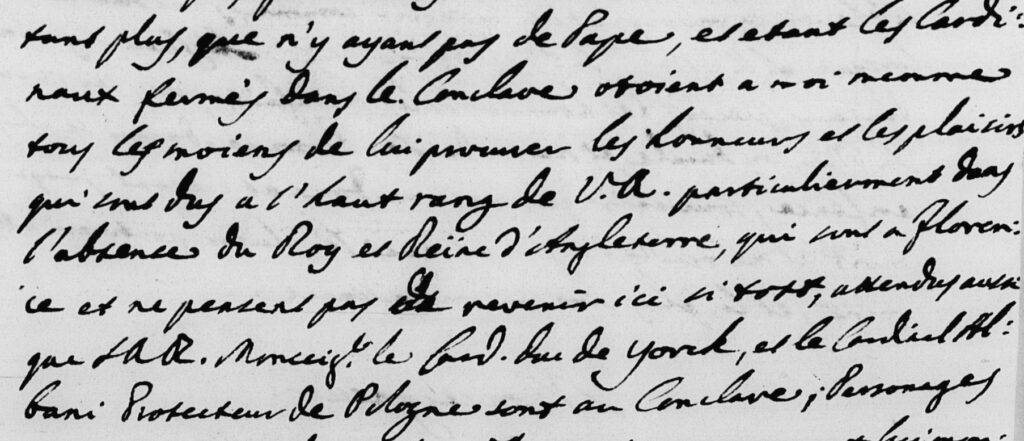 tant plus, que n'y ayant pas de Pape, et etant les Cardi:
naux fermés dans le Conclave otoient a moi memme
tous les moiens de lui procurer les honneurs et les plaisirs
qui sont dus a l'haut rang de V. A. particulierement dans
l'absense du Roy et Reine d'Angleterre, qui sont a Floren:
ce et ne pensent pas de revenir ici si tost, attendus aussi
que S.A.R. Monseigr. le Card. duc de Yorck, et le Cardial Al:
bani Protecteur de Pologne sont au Conclave; Personages